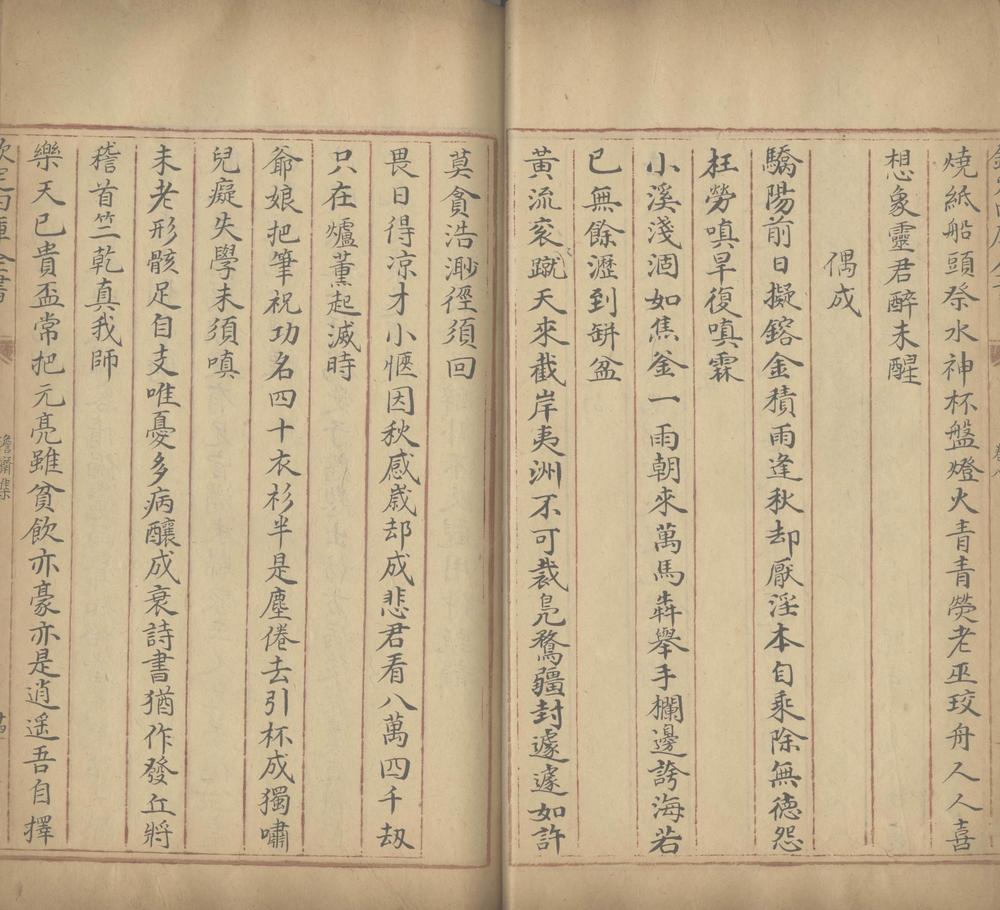 燒紙船頭祭水神杯盤燈火青青熒老巫珓舟人人喜
想象靈君醉未醒
偶成
驕陽前日擬鎔金積雨逢秋却厭淫本自乘除無德怨
枉勞嗔旱復嗔霖
小溪淺涸如焦釜一雨朝來萬馬犇舉手欄邊誇海若
已無餘瀝到缾盆
黃流衮蹴天來截岸夷洲不可裁鳧鶩疆封遽遽如許
莫貪浩渺徑須回
畏日得凉才小愜因秋感歲却成悲君看八萬四千刼
只在爐薰起滅時
爺娘把筆祝功名四十衣衫半是塵倦去引杯成獨嘯
兒癡失學未須嗔
未老形骸足自支唯憂多病釀成衰詩書猶作發丘將
稽首竺乾真我師
樂天已貴盃常把元亮雖貧飲亦豪亦是逍遥吾自擇
澹齋集